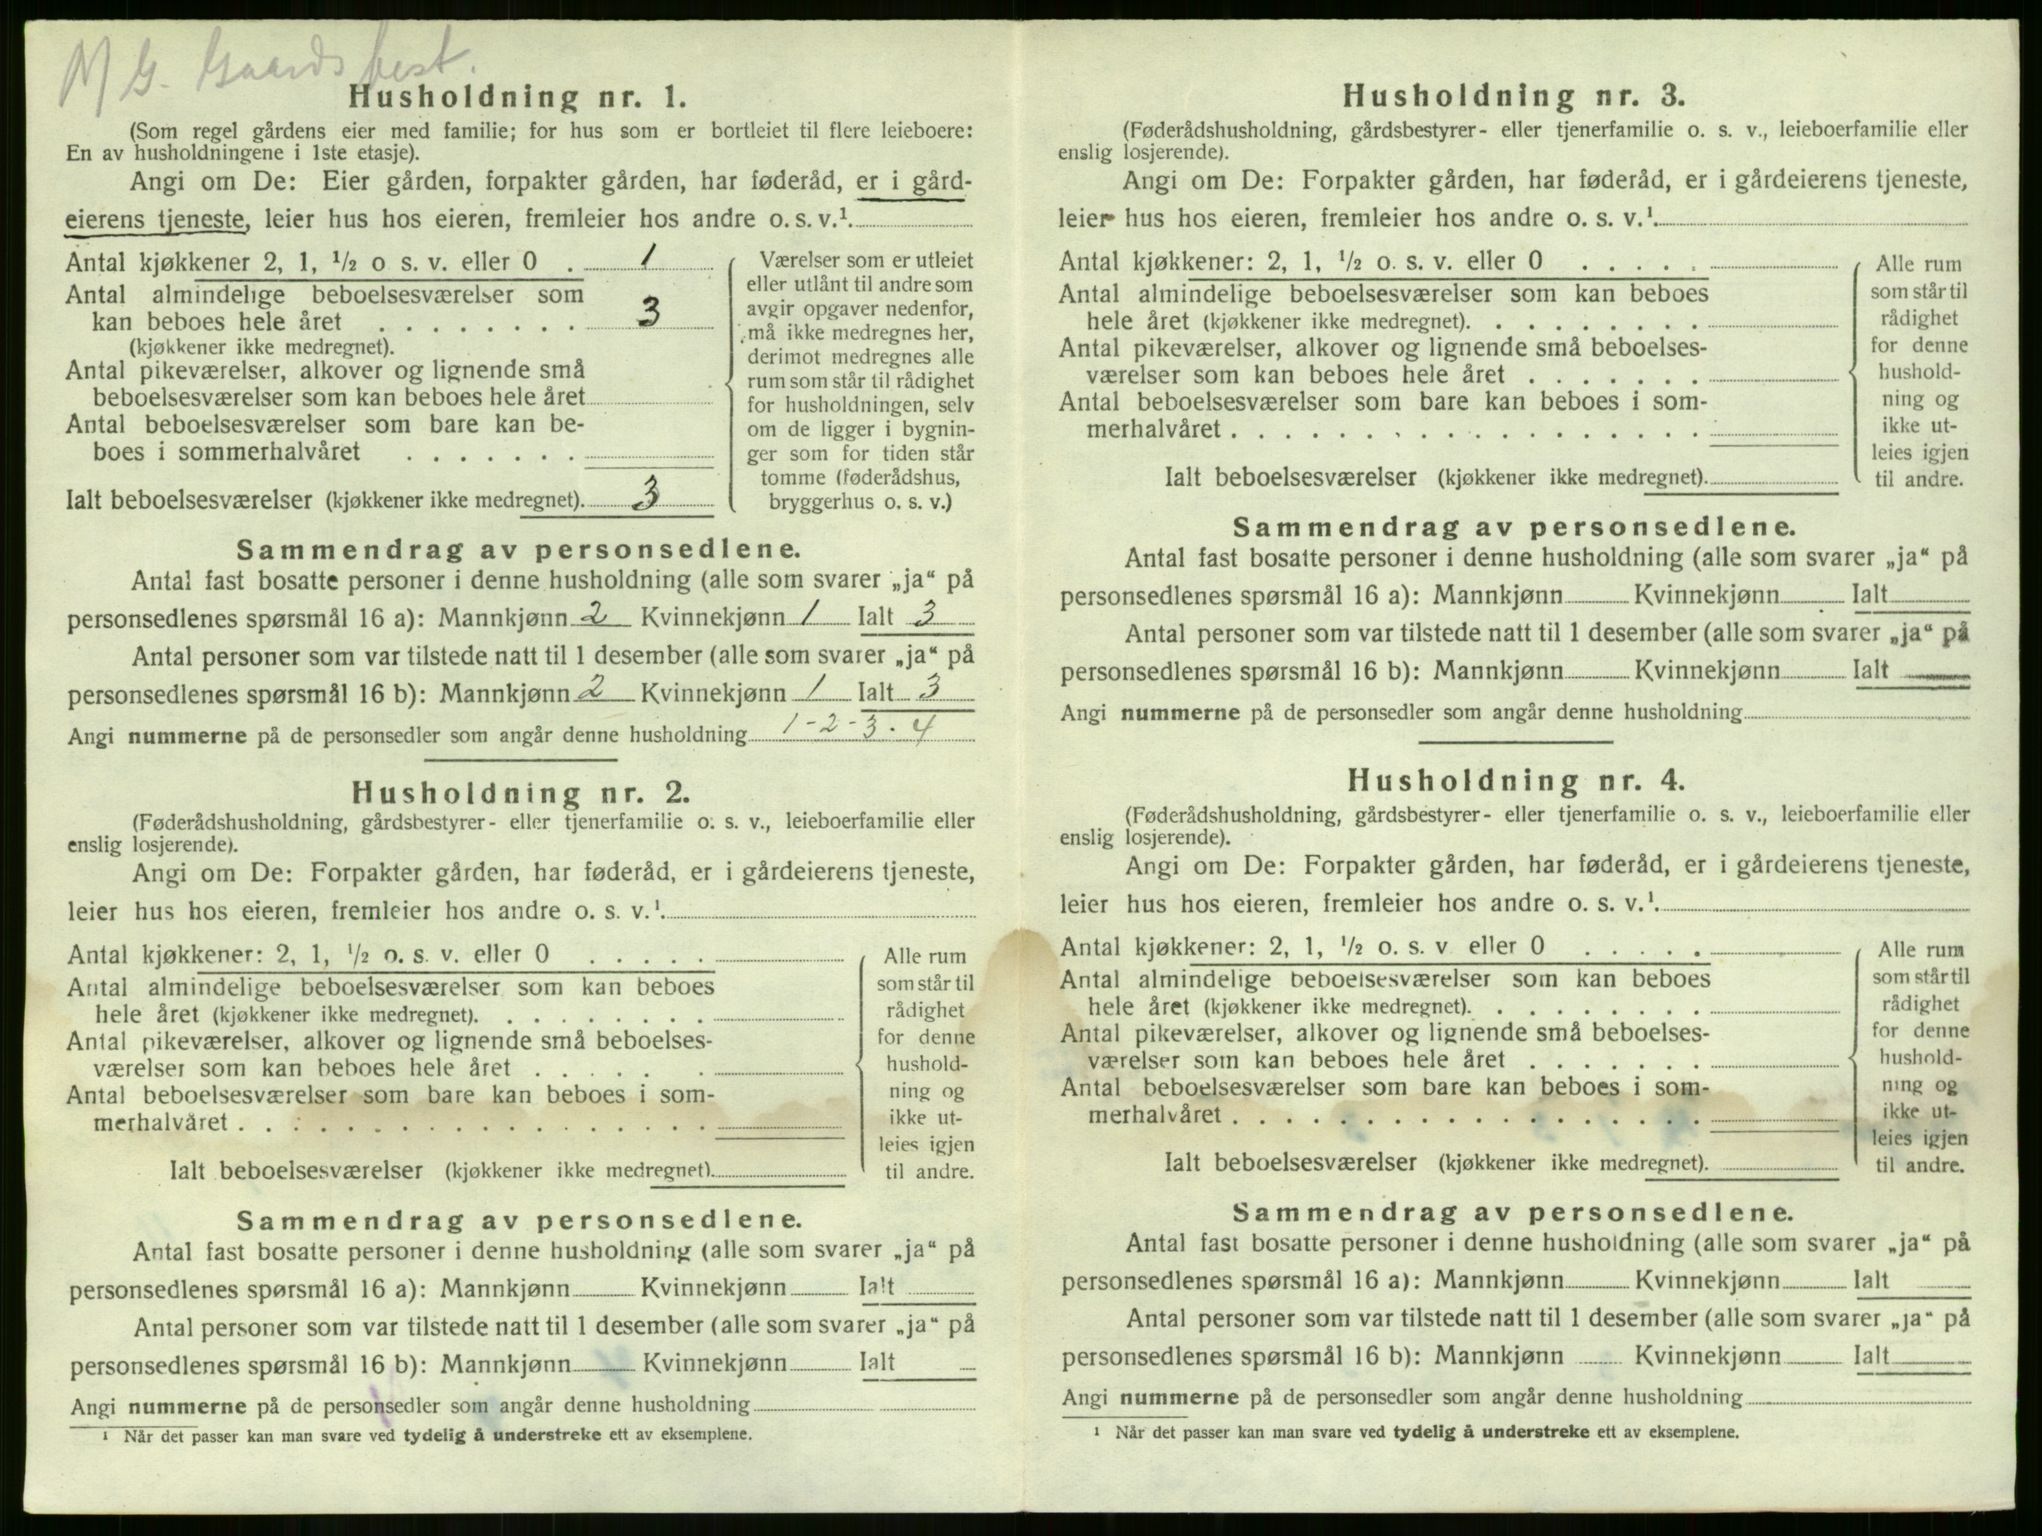 M G. Gaardsbest.
Husholdning nr. 1.
(Som regel gårdens eier med familie; for hus som er bortleiet til flere leieboere:
En av husholdningene i 1ste etasje).
Angi om De: Eier gården, forpakter gården, har føderåd, er i gård-
eierens tjeneste, leier hus hos eieren, fremleier hos andre o. s. v.¹.
Antal kjøkkener 2, 1, ½ o s. v. eller 0 . 1
Antal almindelige beboelsesværelser som
kan beboes hele året . . . . . . . . 3
(kjøkkener ikke medregnet).
Antal pikeværelser, alkover og lignende små
beboelsesværelser som kan beboes hele året
Antal beboelsesværelser som bare kan be-
boes i sommerhalvåret . . . . . . .
Ialt beboelsesværelser (kjøkkener ikke medregnet). 3
Værelser som er utleiet
eller utlånt til andre som
avgir opgaver nedenfor,
må ikke medregnes her,
derimot medregnes alle
rum som står til rådighet
for husholdningen, selv
om de ligger i bygnin-
ger som for tiden står
tomme (føderådshus,
bryggerhus o. s. v.)
Sammendrag av personsedlene.
Antal fast bosatte personer i denne husholdning (alle som svarer „ja“ på
personsedlenes spørsmål 16 a): Mannkjønn 2 Kvinnekjønn 1 Ialt 3
Antal personer som var tilstede natt til 1 desember (alle som svarer „ja“ på
personsedlenes spørsmål 16 b): Mannkjønn 2 Kvinnekjønn 1 Ialt 3
Angi nummerne på de personsedler som angår denne husholdning 1-2-3.4
Husholdning nr. 2.
(Føderådshusholdning, gårdsbestyrer- eller tjenerfamilie o. s. v., leieboerfamilie eller
enslig losjerende).
Angi om De: Forpakter gården, har føderåd, er i gårdeierens tjeneste,
leier hus hos eieren, fremleier hos andre o. s. v.¹.
Antal kjøkkener: 2, 1, ½ o. s. v. eller 0 . . . . .
Antal almindelige beboelsesværelser som kan beboes
hele året (kjøkkener ikke medregnet). . . . . . . . .
Antal pikeværelser, alkover og lignende små beboelses-
værelser som kan beboes hele året . . . . . .
Antal beboelsesværelser som bare kan beboes i som-
merhalvåret . . . . . . . . . . . . . . . . . .
Ialt beboelsesværelser (kjøkkener ikke medregnet).
Alle rum
som står til
rådighet
for denne
hushold-
ning og
ikke ut-
leies igjen
til andre.
Sammendrag av personsedlene.
Antal fast bosatte personer i denne husholdning (alle som svarer „ja“ på
personsedlenes spørsmål 16 a): Mannkjønn Kvinnekjønn Ialt
Antal personer som var tilstede natt til 1 desember (alle som svarer „ja“ på
personsedlenes spørsmål 16 b): Mannkjønn Kvinnekjønn Ialt
Angi nummerne på de personsedler som angår denne husholdning
¹ Når det passer kan man svare ved tydelig å understreke ett av eksemplene.
Husholdning nr. 3.
(Føderådshusholdning, gårdsbestyrer- eller tjenerfamilie o. s. v., leieboerfamilie eller
enslig losjerende).
Angi om De: Forpakter gården, har føderåd, er i gårdeierens tjeneste,
leier hus hos eieren, fremleier hos andre o. s. v.¹.
Antal kjøkkener: 2, 1, ½ o. s. v. eller 0 . . . . .
Antal almindelige beboelsesværelser som kan beboes
hele året (kjøkkener ikke medregnet). . . . . . . . .
Antal pikeværelser, alkover og lignende små beboelses-
værelser som kan beboes hele året . . . . . . .
Antal beboelsesværelser som bare kan beboes i som-
merhalvåret . . . . . . . . . . . . . . . . . .
Ialt beboelsesværelser (kjøkkener ikke medregnet).
Alle rum
som står til
rådighet
for denne
hushold-
ning og
ikke ut-
leies igjen
til andre.
Sammendrag av personsedlene.
Antal fast bosatte personer i denne husholdning (alle som svarer „ja“ på
personsedlenes spørsmål 16 a): Mannkjønn Kvinnekjønn Ialt
Antal personer som var tilstede natt til 1 desember (alle som svarer „ja“ på
personsedlenes spørsmål 16 b): Mannkjønn Kvinnekjønn Ialt
Angi nummerne på de personsedler som angår denne husholdning
Husholdning nr. 4.
(Føderådshusholdning, gårdsbestyrer- eller tjenerfamilie o. s. v., leieboerfamilie eller
enslig losjerende).
Angi om De: Forpakter gården, har føderåd, er i gårdeierens tjeneste,
leier hus hos eieren, fremleier hos andre o. s. v.¹.
Antal kjøkkener: 2, 1, ½ o. s. v eller 0 . . . . .
Antal almindelige beboelsesværelser som kan beboes
hele året (kjøkkener ikke medregnet). . . . . . . . .
Antal pikeværelser, alkover og lignende små beboelses-
værelser som kan beboes hele året . . . . . . .
Antal beboelsesværelser som bare kan beboes i som-
merhalvåret . . . . . . . . . . . . . . . . . .
Ialt beboelsesværelser (kjøkkener ikke medregnet).
Alle rum
som står til
rådighet
for denne
hushold-
ning og
ikke ut-
leies igjen
til andre.
Sammendrag av personsedlene.
Antal fast bosatte personer i denne husholdning (alle som svarer „ja“ på
personsedlenes spørsmål 16 a): Mannkjønn Kvinnekjønn Ialt
Antal personer som var tilstede natt til 1 desember (alle som svarer „ja“ på
personsedlenes spørsmål 16 b): Mannkjønn Kvinnekjønn Ialt
Angi nummerne på de personsedler som angår denne husholdning
¹ Når det passer kan man svare ved tydelig å understreke ett av eksemplene.